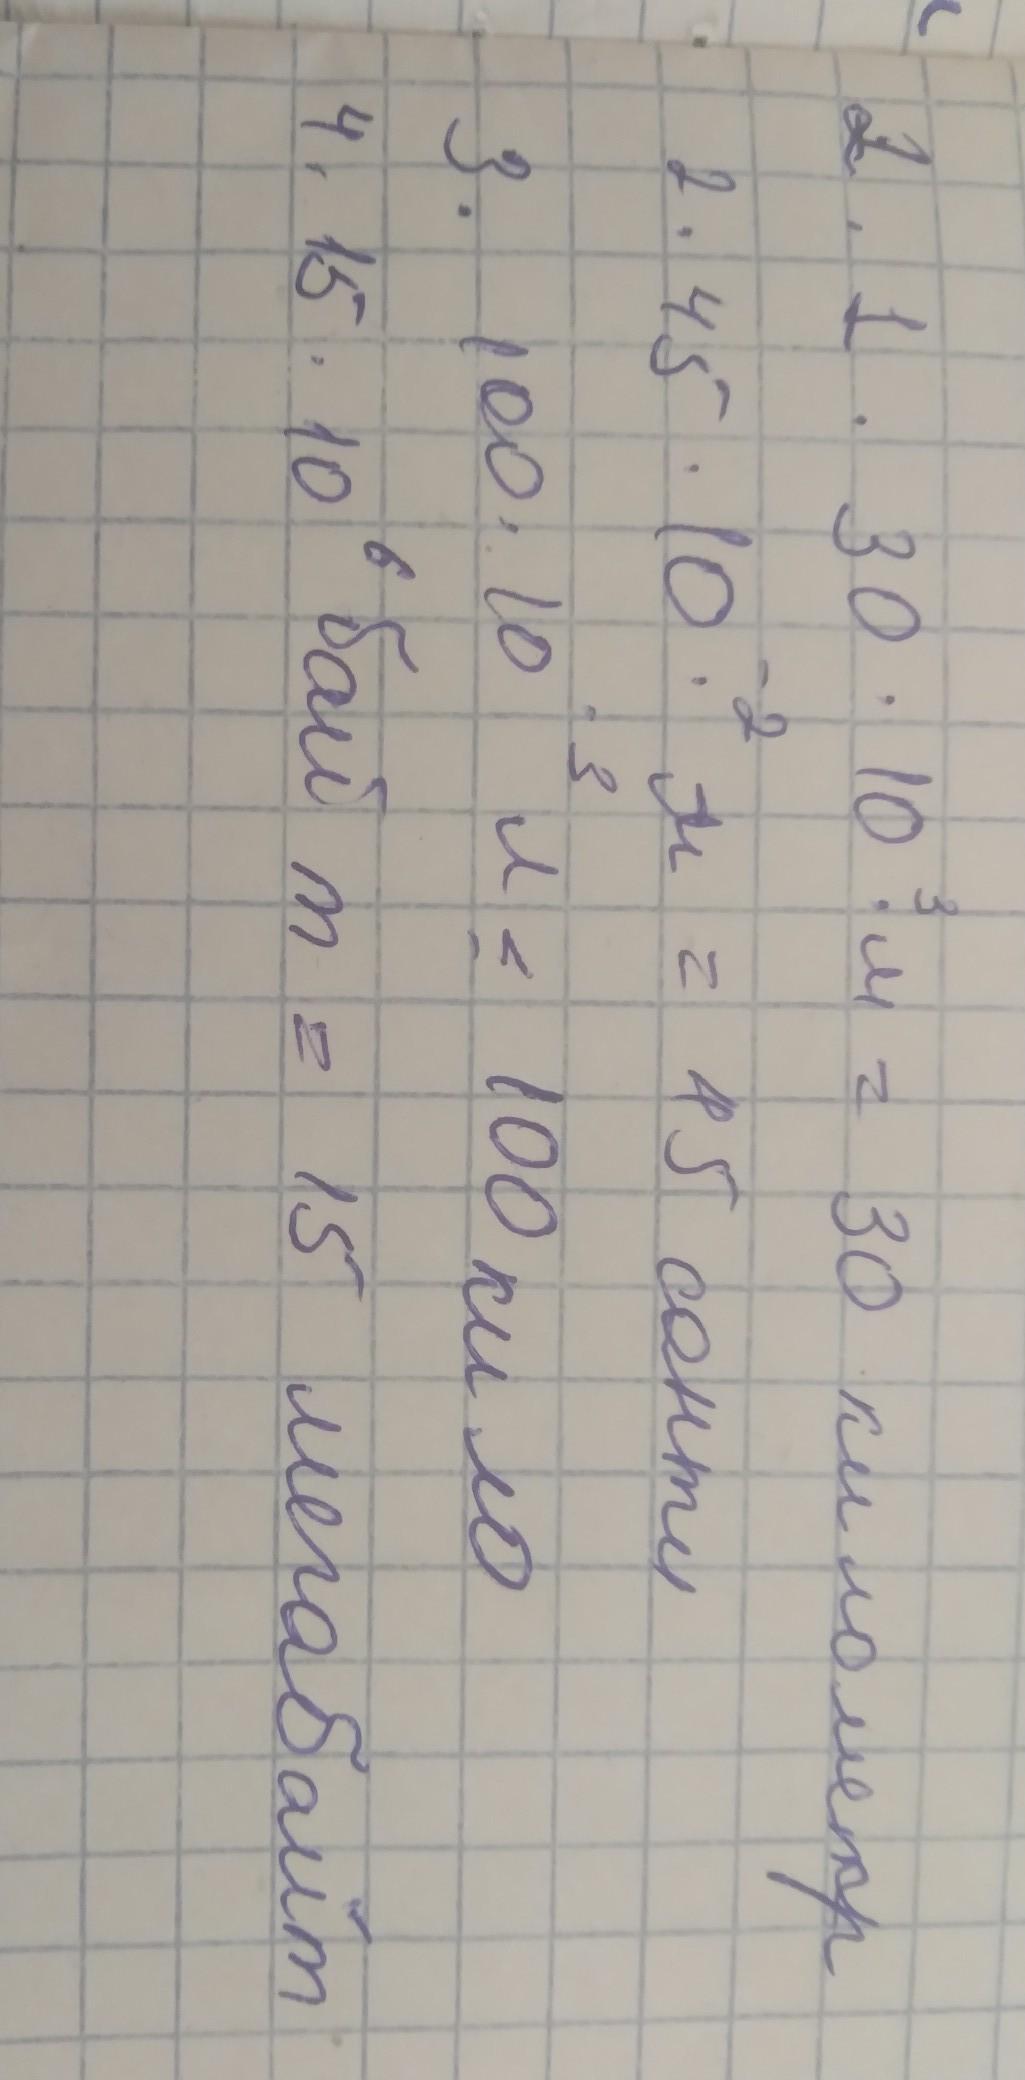 1. 1. 30 · 10³ · м = 30 километр
2. 45 · 10⁻² · м = 45 санти
3. 100 · 10⁻³ л = 100 кило
4. 15 · 10⁶ байт = 15 мегабайт